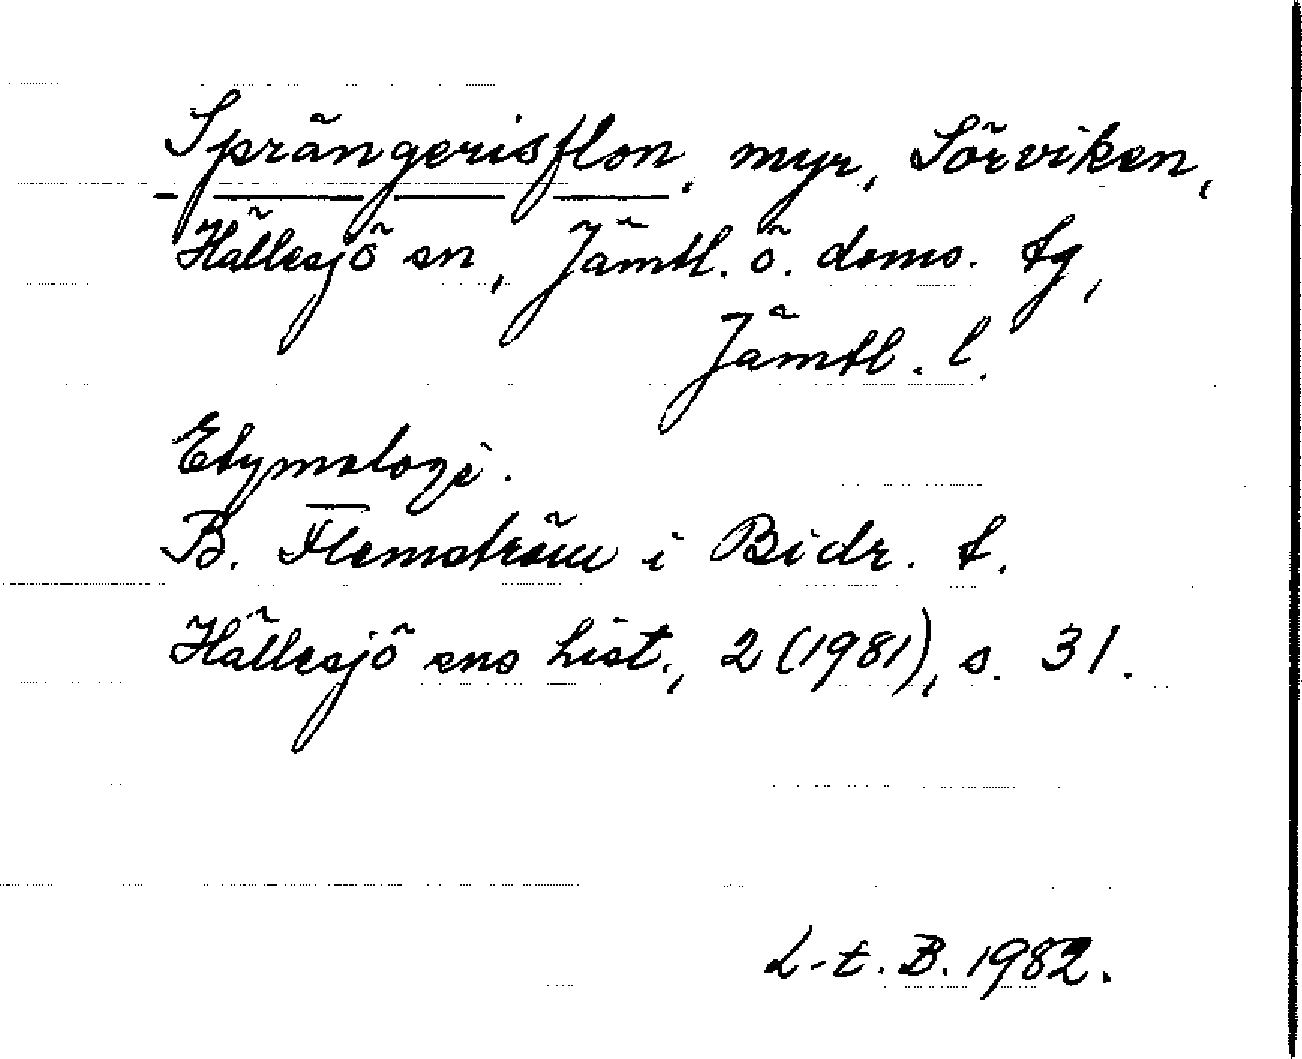 Sprängerisflon, myr, Sörviken,
Hällesjö sn, Jämtl. ö. doms. tg,
Jämtl. l.
Etymologi.
B. Flemström i Bidr. t.
Hällesjö sns hist., 2 (1981), s. 31.
L-t. B. 1982.